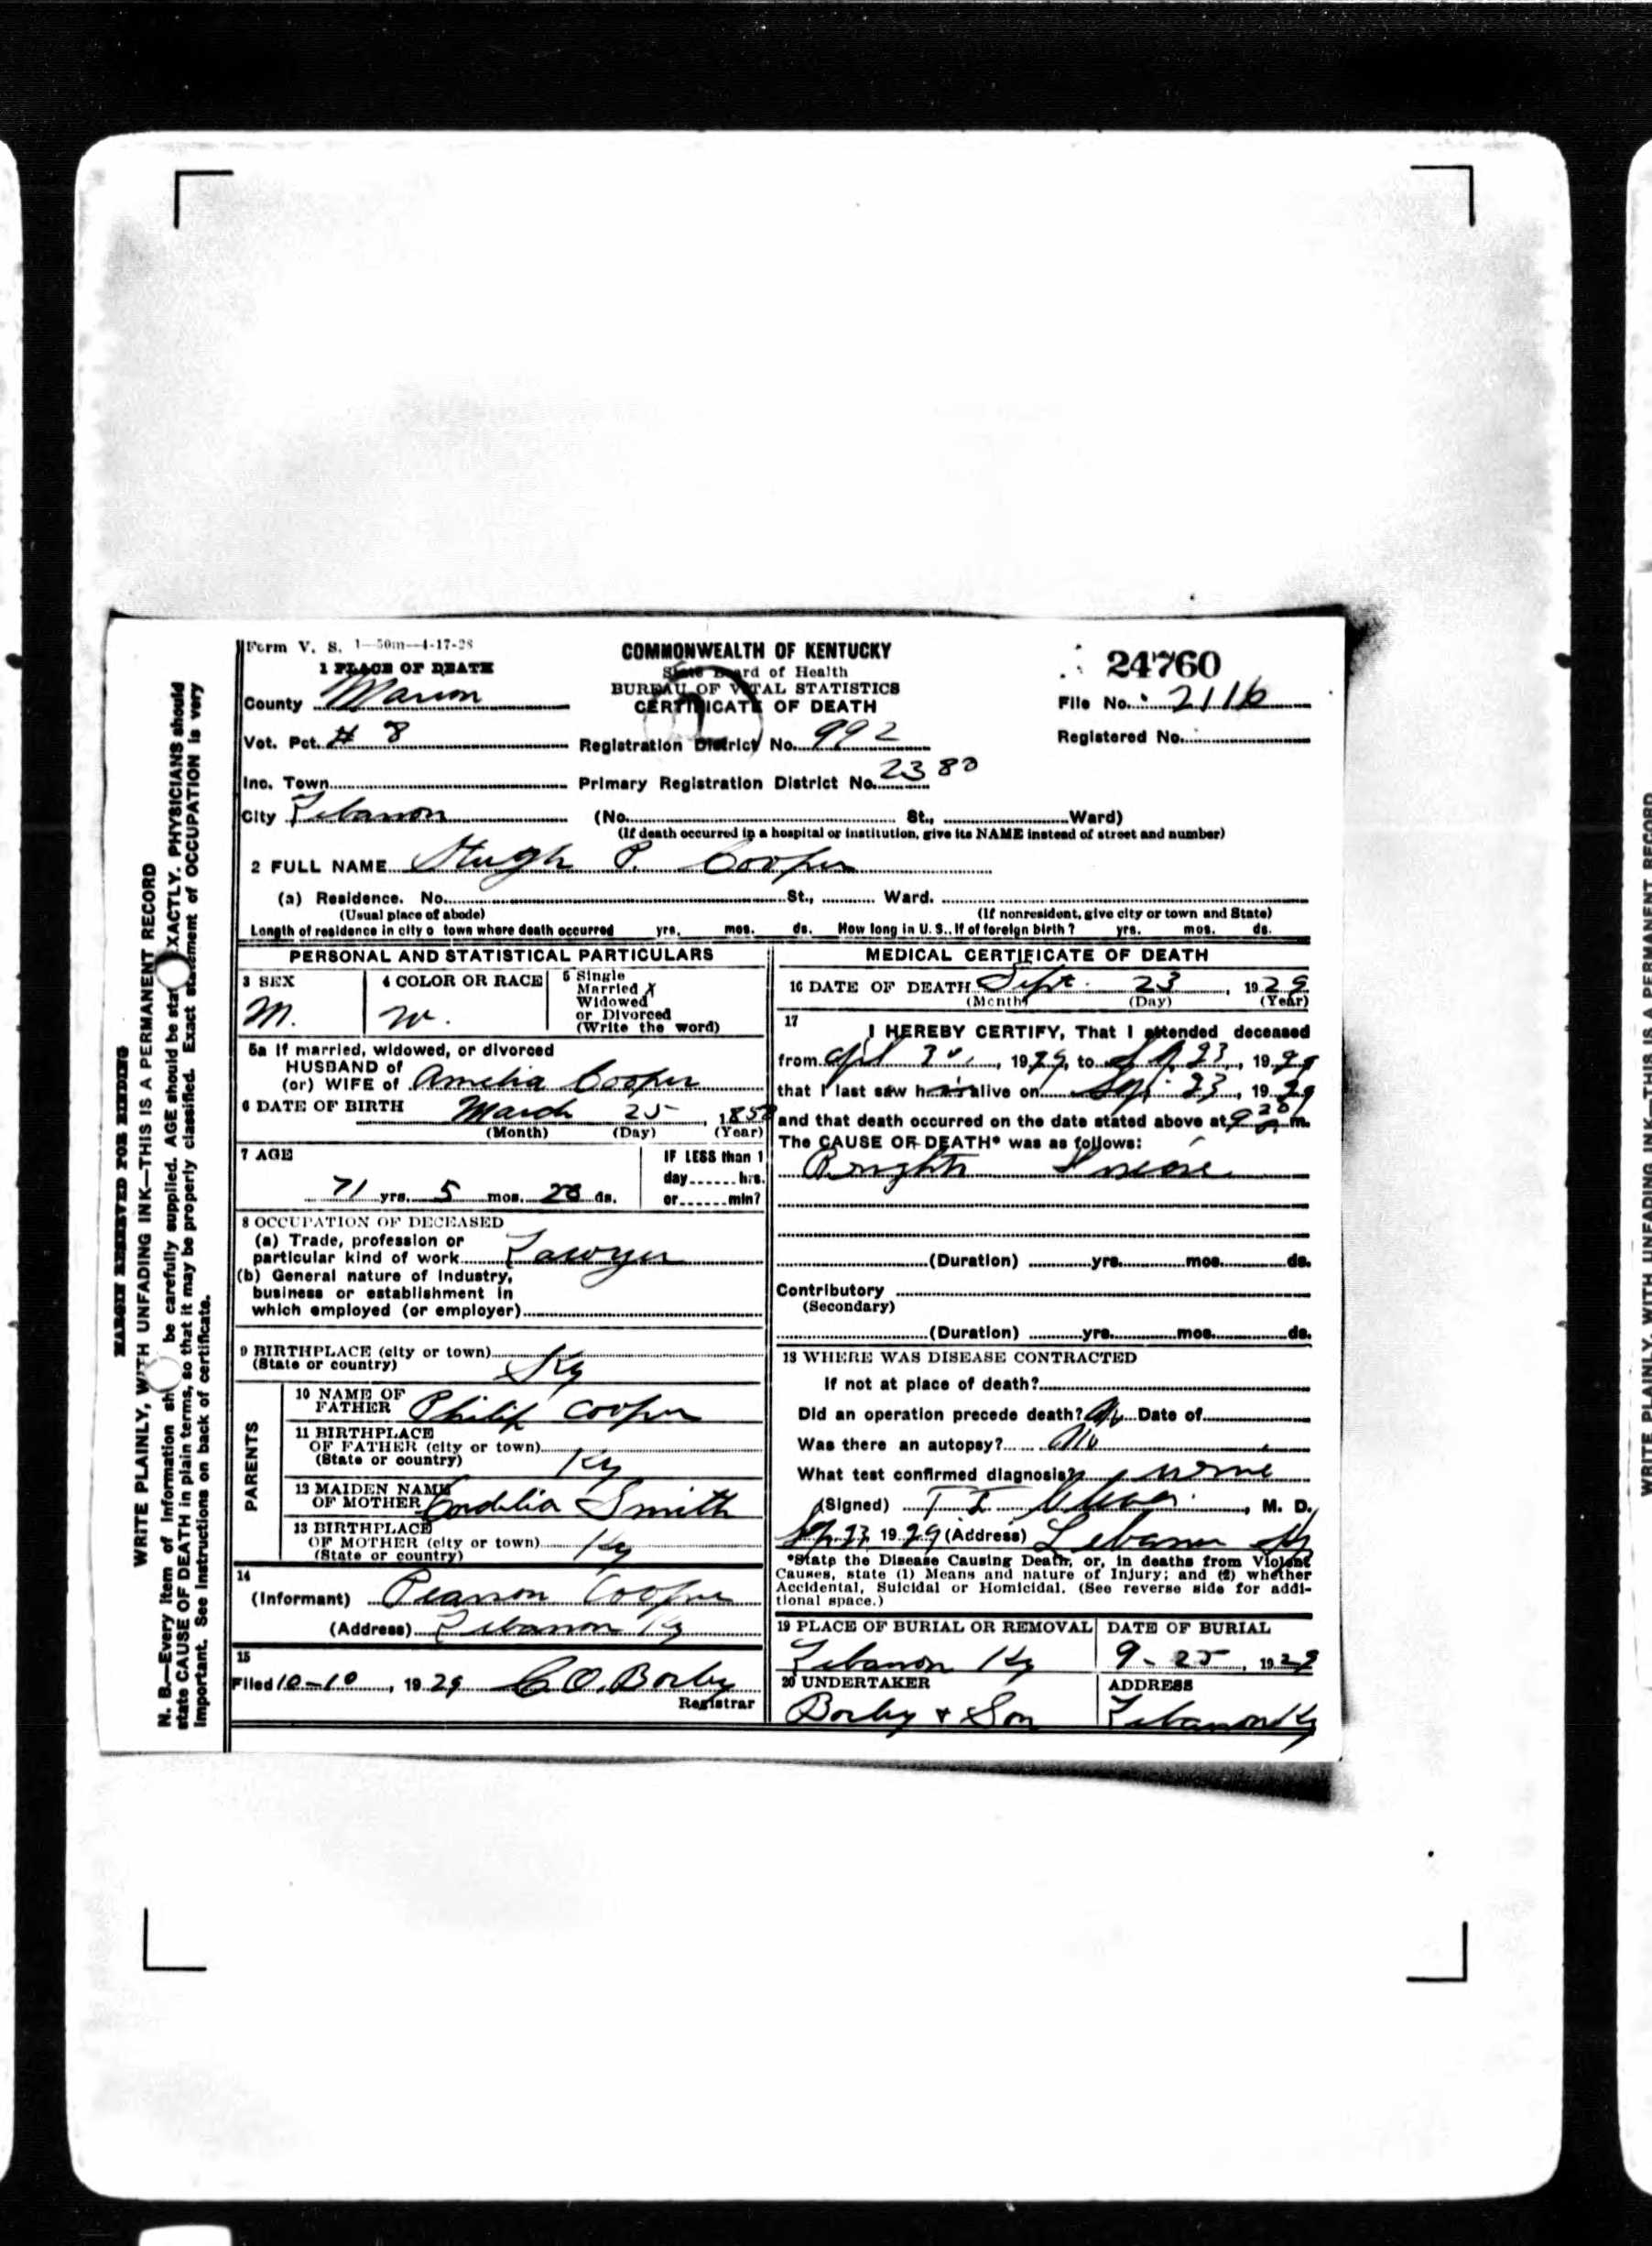 Form V. S. 1—50m—4-17-28
COMMONWEALTH OF KENTUCKY
State Board of Health
BUREAU OF VITAL STATISTICS
CERTIFICATE OF DEATH
24760
File No. 2116
Registered No.
1 PLACE OF DEATH
County Marion
Vot. Pct. # 8
Registration District No. 992
Inc. Town
Primary Registration District No. 2380
City Lebanon (No. St., Ward)
(If death occurred in a hospital or institution, give its NAME instead of street and number)
2 FULL NAME Hugh P. Cooper
(a) Residence. No. St., Ward.
(Usual place of abode) (If nonresident, give city or town and State)
Length of residence in city o town where death occurred yrs. mos. ds. How long in U. S., if of foreign birth? yrs. mos. ds.
PERSONAL AND STATISTICAL PARTICULARS
3 SEX
M.
4 COLOR OR RACE
W.
5 Single
Married X
Widowed
or Divorced
(Write the word)
5a If married, widowed, or divorced
HUSBAND of
(or) WIFE of Amelia Cooper
6 DATE OF BIRTH
March 25, 185
(Month) (Day) (Year)
7 AGE
71 yrs. 5 mos. 28 ds.
IF LESS than 1
day hrs.
or min?
8 OCCUPATION OF DECEASED
(a) Trade, profession or
particular kind of work Lawyer
(b) General nature of industry,
business or establishment in
which employed (or employer)
9 BIRTHPLACE (city or town)
(State or country) Ky
PARENTS
10 NAME OF
FATHER Philip Cooper
11 BIRTHPLACE
OF FATHER (city or town)
(State or country) Ky
12 MAIDEN NAME
OF MOTHER Cordelia Smith
13 BIRTHPLACE
OF MOTHER (city or town)
(State or country) Ky
14
(Informant) Pearson Cooper
(Address) Lebanon Ky
15
Filed 10-10, 1929 C. O. Borby
Registrar
MEDICAL CERTIFICATE OF DEATH
16 DATE OF DEATH Sept. 23, 1929
(Month) (Day) (Year)
17
I HEREBY CERTIFY, That I attended deceased
from 1929, to 23, 1929
that I last saw him alive on Sept. 23, 1929
and that death occurred on the date stated above at 9 20 m.
The CAUSE OF DEATH* was as follows:
Brights Disease
(Duration) yrs. mos. ds.
Contributory
(Secondary)
(Duration) yrs. mos. ds.
18 WHERE WAS DISEASE CONTRACTED
If not at place of death?
Did an operation precede death? No Date of
Was there an autopsy? No
What test confirmed diagnosis? none
(Signed) M. D.
Sep 23 1929 (Address) Lebanon Ky
*State the Disease Causing Death, or, in deaths from Violent
Causes, state (1) Means and nature of Injury; and (2) whether
Accidental, Suicidal or Homicidal. (See reverse side for addi-
tional space.)
19 PLACE OF BURIAL OR REMOVAL
Lebanon Ky
DATE OF BURIAL
9-25, 1929
20 UNDERTAKER
Borby & Son
ADDRESS
Lebanon Ky
MARGIN RESERVED FOR BINDING
WRITE PLAINLY, WITH UNFADING INK—THIS IS A PERMANENT RECORD
N. B.—Every item of information sh be carefully supplied. AGE should be stat EXACTLY. PHYSICIANS should
state CAUSE OF DEATH in plain terms, so that it may be properly classified. Exact statement of OCCUPATION is very
important. See instructions on back of certificate.
WRITE PLAINLY, WITH UNFADING INK—THIS IS A PERMANENT RECORD